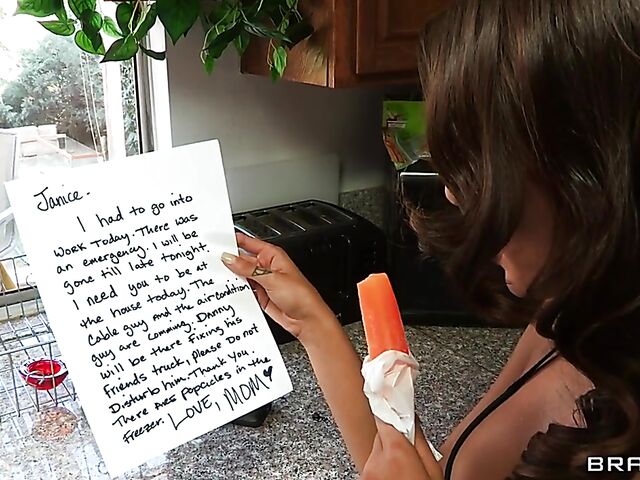 Janice.
I had to go into
work today. There was
an emergency. I will be
gone till late tonight.
I need you to be at
the house today. The
Cable guy and the air condition
guy are comming. Danny
will be there fixing his
friends truck, please Do not
Disturb him. Thank You.
There Are Popcicles in the
freezer. LOVE, MOM
BRA